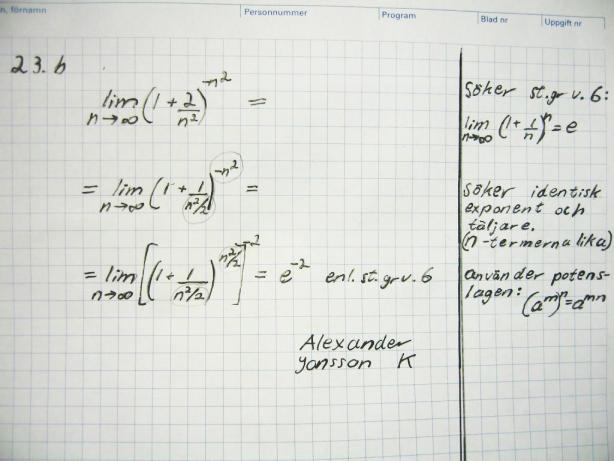 n, förnamn Personnummer Program Blad nr Uppgift nr
23.b
lim n→∞ (1 + 2/n²)^-n² =
= lim n→∞ (1 + 1/(n²/2))^-n² =
= lim n→∞ [(1 + 1/(n²/2))^n²/2]^-2 = e^-2 enl. st. gr v. 6
Alexander
Jonsson K
söker st. gr v. 6:
lim n→∞ (1 + 1/n)^n = e
söker identisk
exponent och
täljare.
(n-termerna lika)
använder potens-
lagen: (a^m)^n = a^mn